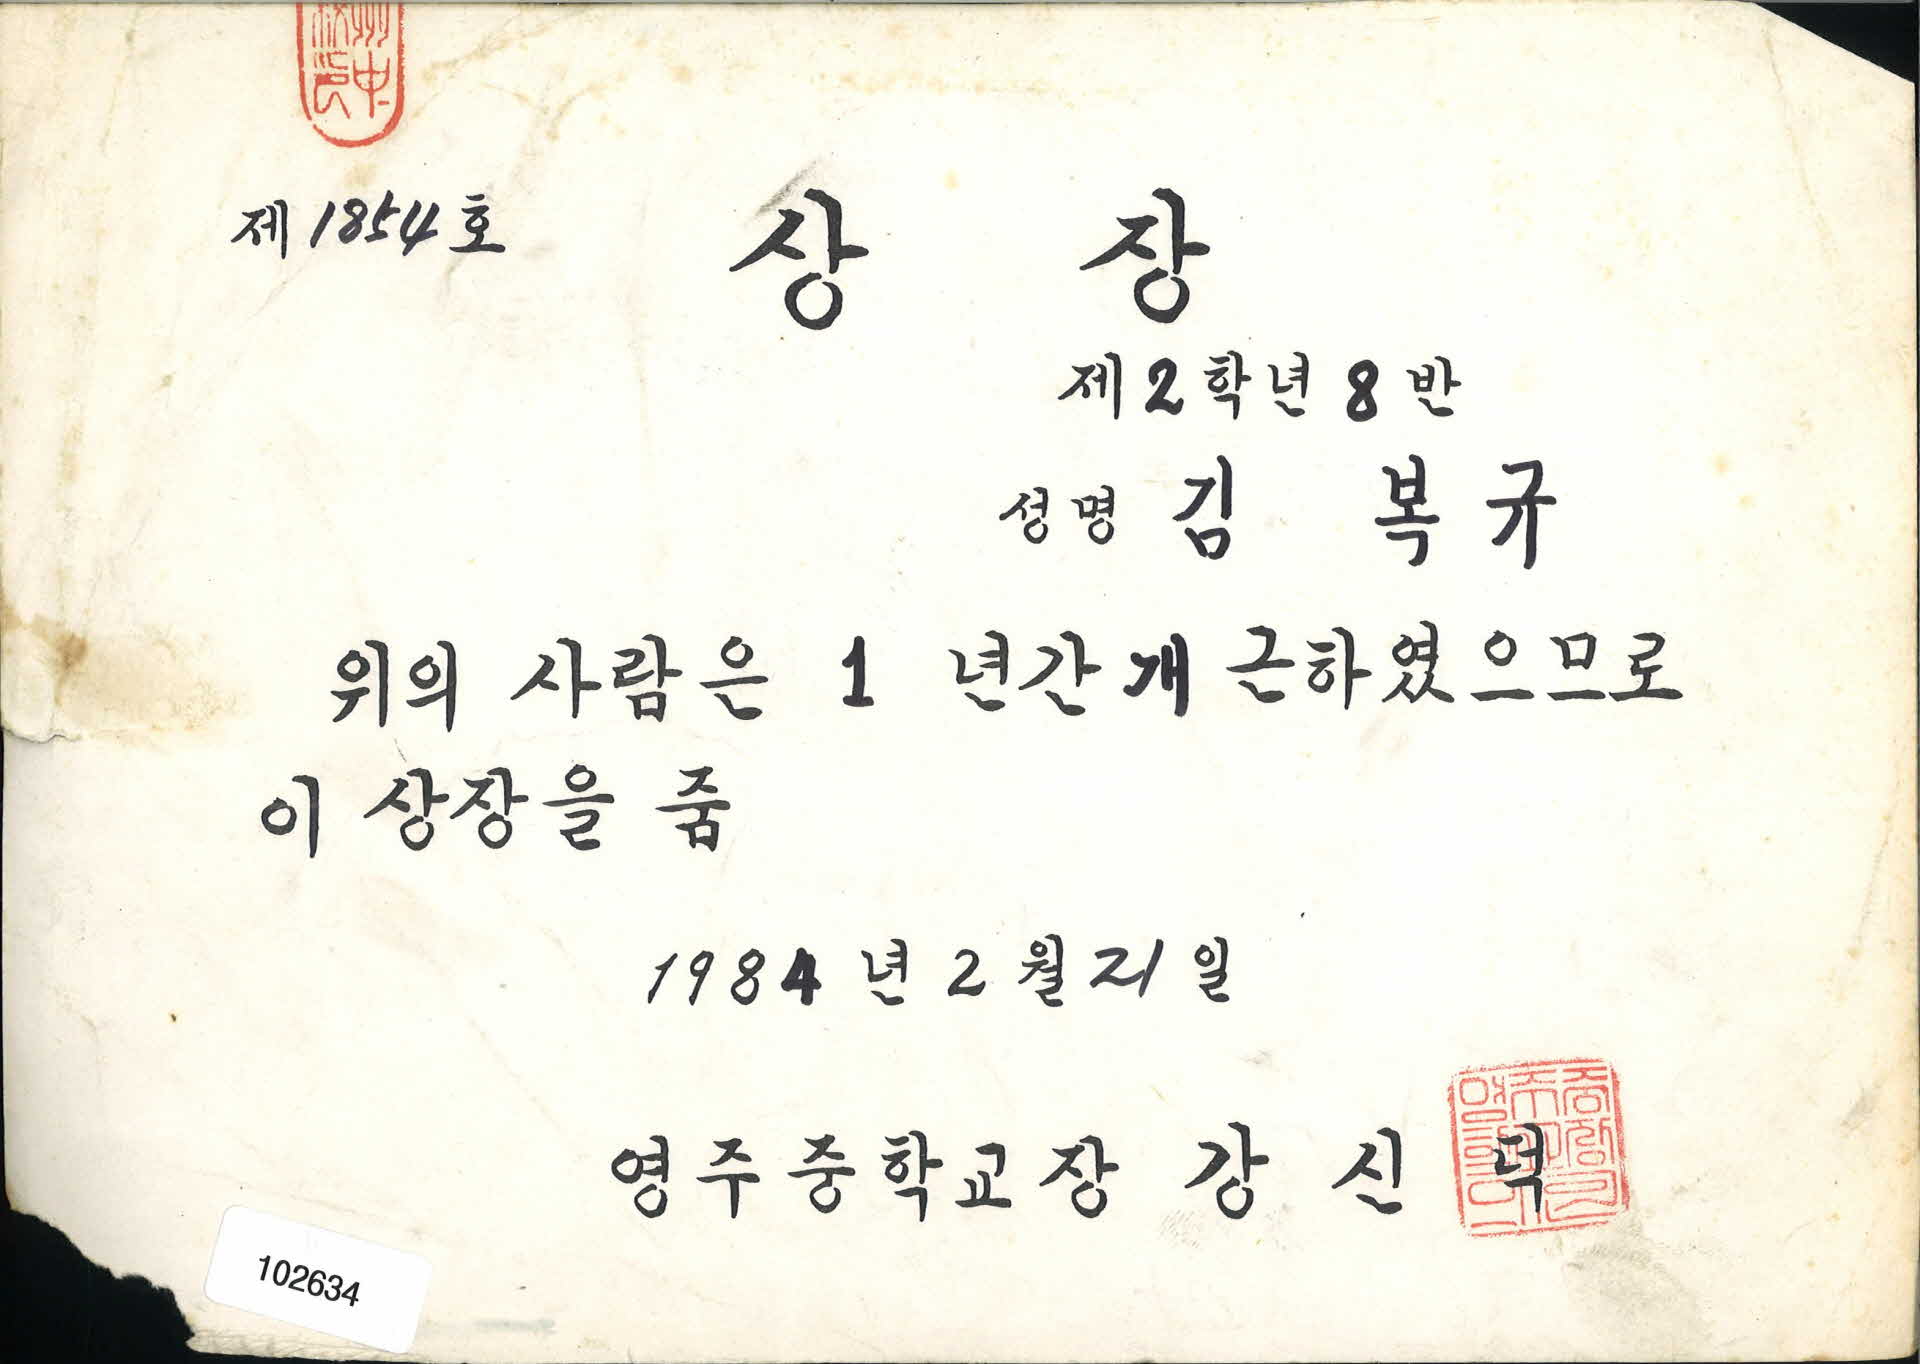 제 1854 호
상 장
제 2 학년 8 반
성명 김 복 규
위의 사람은 1 년간 개 근하였으므로
이 상장을 줌
1984 년 2 월 21 일
영주중학교장 강 신 덕
102634